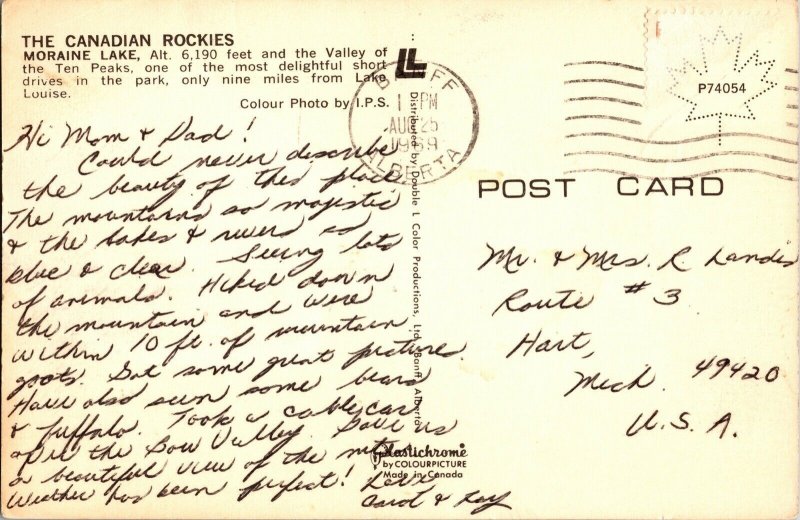 THE CANADIAN ROCKIES
MORAINE LAKE, Alt. 6,190 feet and the Valley of
the Ten Peaks, one of the most delightful short
drives in the park, only nine miles from Lake
Louise.
Colour Photo by I.P.S.
Hi Mom & Dad!
Could never describe
the beauty of this place.
The mountains so majestic
& the lakes & rivers so
blue & clear. Seeing lots
of animals. Hiked down
the mountain and were
within 10 ft. of mountain
goats. Got some great pictures.
Have also seen some bears
& buffalo. Took a cable car
over the Bow Valley. Gave us
a beautiful view of the mts.
Weather has been perfect! Love
Carol & Ray
LL
Distributed by Double L Color Productions, Ltd., Banff, Alberta
Plastichrome
by COLOURPICTURE
Made in Canada
BANFF
PM
AUG 25
1969
ALBERTA
P74054
POST CARD
Mr. & Mrs. R Landis
Route #3
Hart,
Mich. 49420
U.S.A.